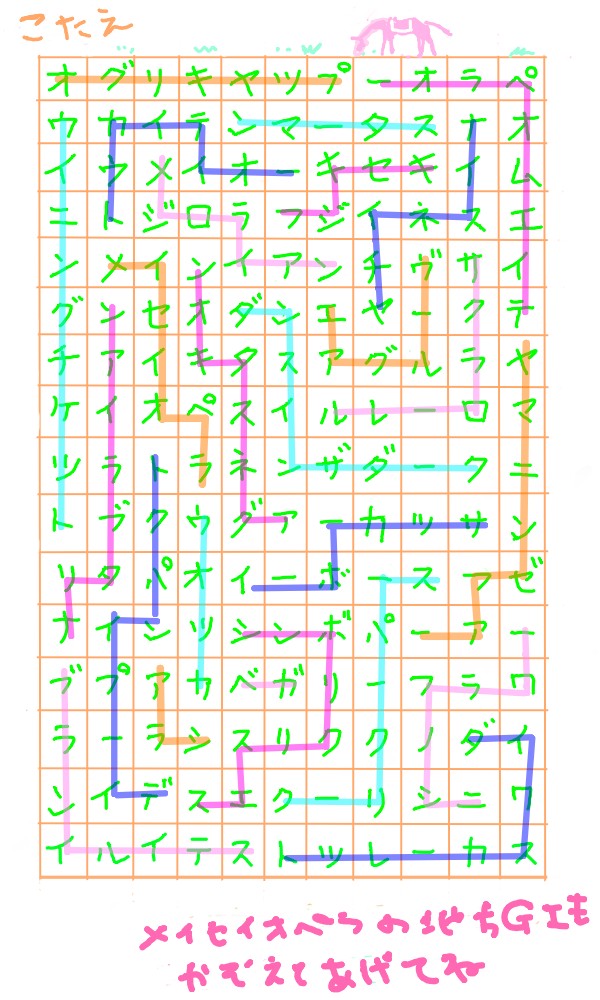 こたえ
オグリキヤツプーオラペ
ウカイテンマータスナオ
イウメイオーキセキイム
ニトジロラフジイネスエ
ンメインイアンチヴサイ
グンセオダンエヤークテ
チアイキタスアグルラヤ
ケイオペスイルレーロマ
ツラトラネンザダークニ
トブクウグアーカツサン
リタパオイーボースアゼ
ナインツシンボパーアー
ブプアカベガリーフラワ
ラーラシスリククノダイ
ンイデスエクーリシニワ
イルイテストツレーカス
メイセイオペラの地方GIも
かぞえてあげてね